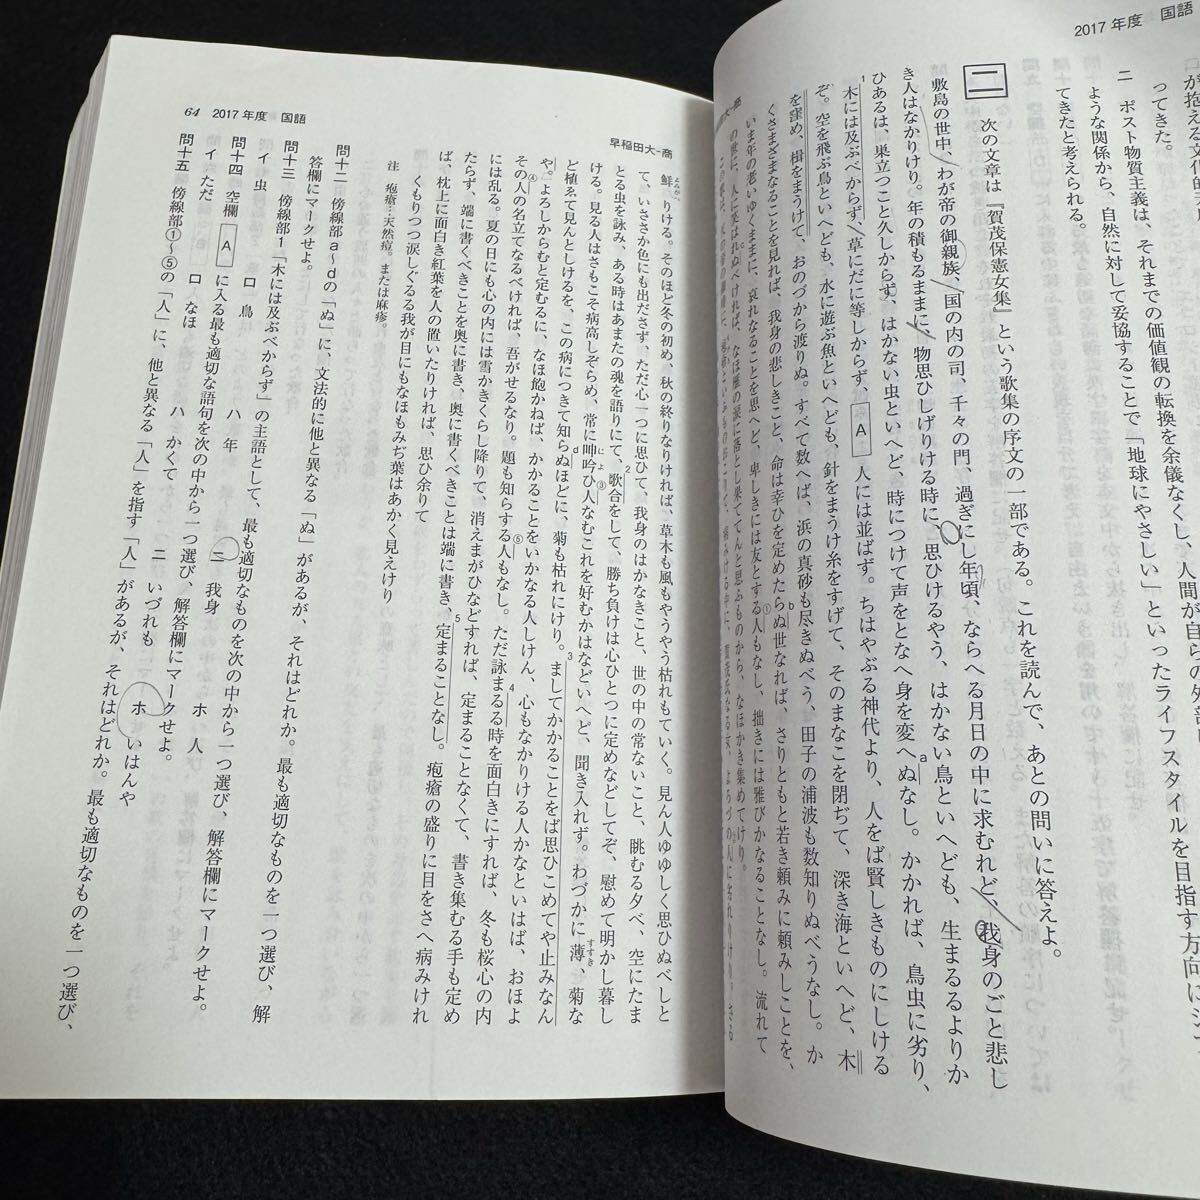 2017年度 国語
ってきた。
ニ ポスト物質主義は、それまでの価値観の転換を余儀なくし、人間が自らの外部
ような関係から、自然に対して妥協することで「地球にやさしい」といったライフスタイルを目指す方向に
てきたと考えられる。
二
次の文章は『賀茂保憲女集』という歌集の序文の一部である。これを読んで、あとの問いに答えよ。
敷島の世中、わが帝の御親族、国の内の司、千々の門、過ぎにし年頃、ならへる月日の中に求むれど、我身のごと悲し
き人はなかりけり。年の積もるままに、物思ひしげりける時に、思ひけるやう、はかない鳥といへども、生まるるよりか
ひあるは、巣立つこと久しからず、はかない虫といへど、時につけて声をとなへ身を変へぬなし。かかれば、鳥虫に劣り、
木には及ぶべからず、草にだに等しからず、A人には並ばず。ちはやぶる神代より、人をば賢しきものにしける
ぞ。空を飛ぶ鳥といへども、水に遊ぶ魚といへども、針をまうけ糸をすげて、そのまなこを閉ぢて、深き海といへど、木
を窪め、楫をまうけて、おのづから渡りぬ。すべて数へば、浜の真砂も尽きぬべう、田子の浦波も数知りぬべうなし。か
くさまざまなることを見れば、我身の悲しきこと、命は幸ひを定めたらぬ世なれば、さりともと若き頼みに頼みしことを、
いま年の老いゆくままに、哀れなることを思へど、卑しきには友とする人もなし、拙きには雅びかなることなし。流れて
64 2017年度 国語
早稲田大-商
りける。そのほど冬の初め、秋の終りなりければ、草木も風もやうやう枯れもていく。見ん人ゆゆしく思ひぬべしと
て、いささか色にも出ださず、ただ心一つに思ひて、我身のはかなきこと、世の中の常ないこと、眺むる夕べ、空にたま
とる虫を詠み、ある時はあまたの魂を語りにて、歌合をして、勝ち負けは心ひとつに定めなどしてぞ、慰めて明かし暮し
ける。見る人はさもこそ病高しぞらめ、常に呻吟ひ人なむこれを好むかはなどいへど、聞き入れず。わづかに薄、菊な
ど植ゑて見んとしけるを、この病につきて知らぬほどに、菊も枯れにけり。ましてかかることをば思ひこめてや止みなん
や。よろしからむと定むるに、なほ飽かねば、かかることをいかなる人しけん、心もなかりける人かなといはば、おほよ
その人の名立てなるべければ、吾がせるなり。題も知らする人もなし。ただ詠まるる時を面白きにすれば、冬も桜心の内
には乱る。夏の日にも心の内には雪かきくらし降りて、消えまがひなどすれば、定まることなくて、書き集むる手も定め
たらず、端に書くべきことを奥に書き、奥に書くべきことは端に書き、定まることなし。疱瘡の盛りに目をさへ病みけれ
ば、枕上に面白き紅葉を人の置いたりければ、思ひ余りて
くもりつつ涙しぐるる我が目にもなほもみぢ葉はあかく見えけり
注 疱瘡…天然痘。または麻疹。
問十二 傍線部a〜dの「ぬ」に、文法的に他と異なる「ぬ」があるが、それはどれか。最も適切なものを一つ選び、解
答欄にマークせよ。
問十三 傍線部1「木には及ぶべからず」の主語として、最も適切なものを次の中から一つ選び、解答欄にマークせよ。
イ 虫 ロ 鳥 ハ 年 ニ 我身 ホ 人
問十四 空欄 A に入る最も適切な語句を次の中から一つ選び、解答欄にマークせよ。
イ ただ ロ なほ ハ かくて ニ いづれも ホ いはんや
問十五 傍線部①〜⑤の「人」に、他と異なる「人」を指す「人」があるが、それはどれか。最も適切なものを一つ選び、